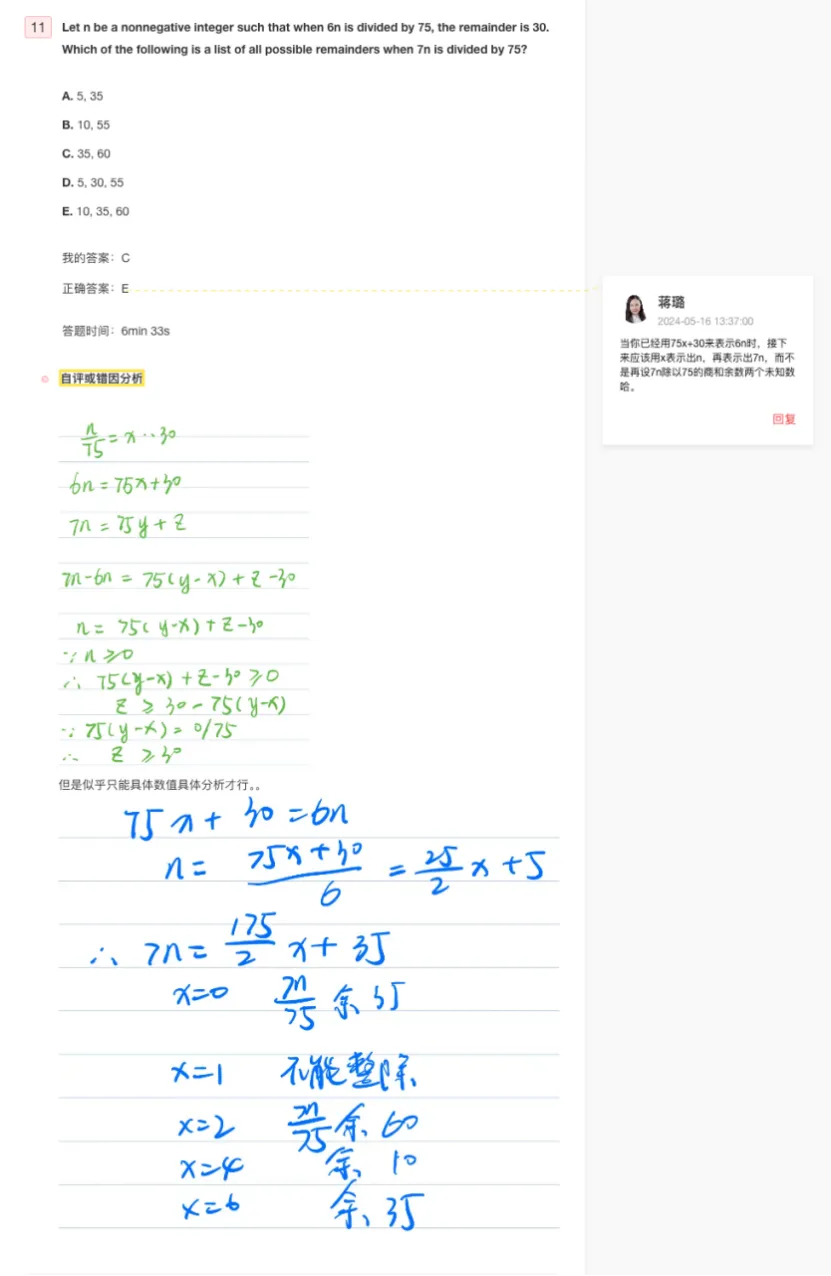 11 Let n be a nonnegative integer such that when 6n is divided by 75, the remainder is 30.
Which of the following is a list of all possible remainders when 7n is divided by 75?
A. 5, 35
B. 10, 55
C. 35, 60
D. 5, 30, 55
E. 10, 35, 60
我的答案：C
正确答案：E
答题时间：6min 33s
蒋璐
2024-05-16 13:37:00
当你已经用75x+30来表示6n时，接下
来应该用x表示出n，再表示出7n，而不
是再设7n除以75的商和余数两个未知数
哈。
回复
自评或错因分析
n/75 = x ·· 30
6n = 75x+30
7n = 75y + z
7n-6n = 75(y-x) + z -30
n = 75(y-x) + z-30
∵ n ≥0
∴ 75(y-x) + z-30 ≥0
z ≥ 30 - 75(y-x)
∵ 75(y-x) = 0/75
∴ z ≥ 30
但是似乎只能具体数值具体分析才行。。
75x + 30 = 6n
n = 75x+30/6 = 25/2 x + 5
∴ 7n = 175/2 x + 35
x=0 7n/75 余 35
x=1 不能整除
x=2 7n/75 余 60
x=4 余 10
x=6 余 35